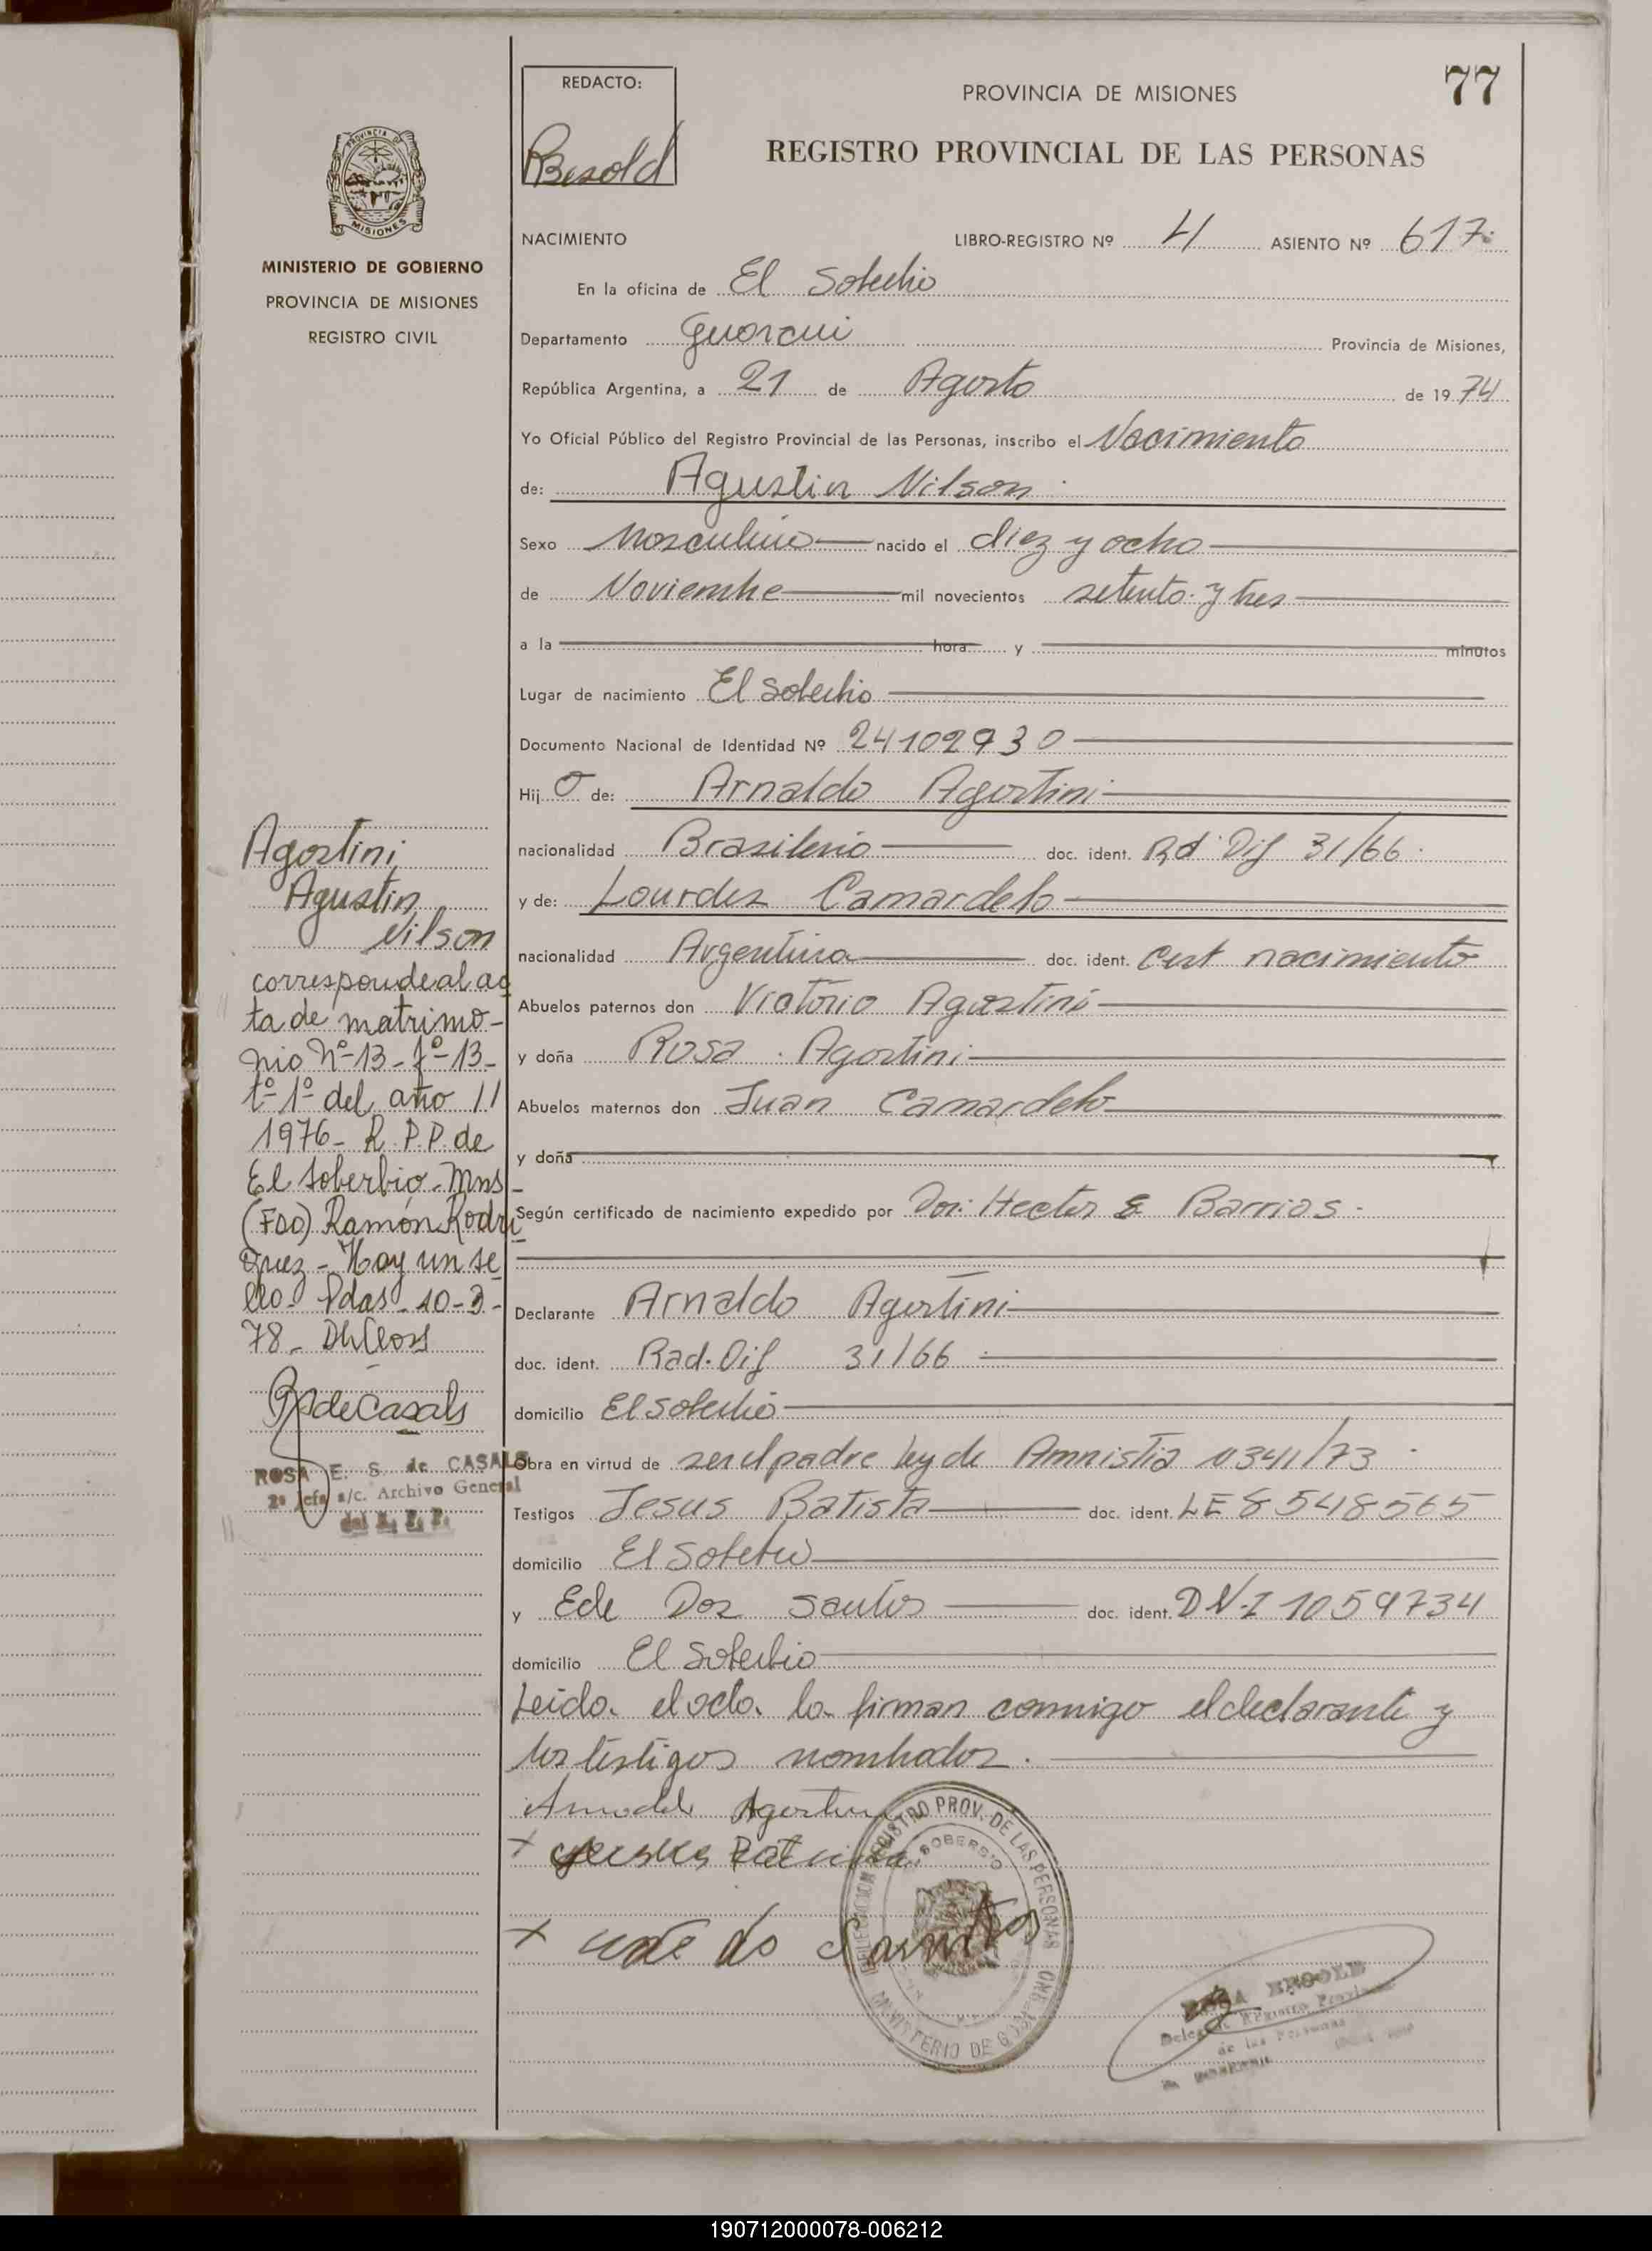 77
REDACTO:
Besold
PROVINCIA DE MISIONES
REGISTRO PROVINCIAL DE LAS PERSONAS
PROVINCIA DE
MISIONES
MINISTERIO DE GOBIERNO
PROVINCIA DE MISIONES
REGISTRO CIVIL
NACIMIENTO LIBRO-REGISTRO Nº 4 ASIENTO Nº 617
En la oficina de El Soberbio
Departamento Guaraní Provincia de Misiones,
República Argentina, a 21 de Agosto de 1974
Yo Oficial Público del Registro Provincial de las Personas, inscribo el Nacimiento
de: Agustin Nilson
Sexo Masculino nacido el diez y ocho
de Noviembre mil novecientos setenta y tres
a la hora y minutos
Lugar de nacimiento El Soberbio
Documento Nacional de Identidad Nº 24102930
Hijo de: Arnaldo Agostini
nacionalidad Brasileño doc. ident. Rd Dif 31/66
y de: Lourdes Camardelo
nacionalidad Argentina doc. ident. Cert nacimiento
Abuelos paternos don Victorio Agostini
y doña Rosa Agostini
Abuelos maternos don Juan Camardelo
y doña
Según certificado de nacimiento expedido por Dor: Hector E Barrios
Declarante Arnaldo Agostini
doc. ident. Rad. Dif 31/66
domicilio El Soberbio
Obra en virtud de ser el padre ley de Amnistia 0341/73
Testigos Jesus Batista doc. ident. LE 8548565
domicilio El Soberbio
y Ede Dos Santos doc. ident. DN-I 1059734
domicilio El Soberbio
Leida el acta la firman conmigo el declarante y
los testigos nombrados.
Arnaldo Agostini
+ Jesus Batista
+ ede do Santos
Agostini
Agustin
Nilson
corresponde al ac
ta de matrimo-
nio Nº-13-fº-13-
tº-1º del año 11
1976- R.P.P. de
El Soberbio-Mns-
(Fdo) Ramón Rodri
guez - Hay un se
llo- Pdas 10-3-
78-
R S de Casals
ROSA E. S. de CASALS
2ª Jefa a/c. Archivo General
del R. P. P.
REGISTRO PROV. DE LAS PERSONAS
SOBERBIO
MINISTERIO DE GOBIERNO
ROSA BESOLD
Delegada Registro Provincial
de las Personas
190712000078-006212